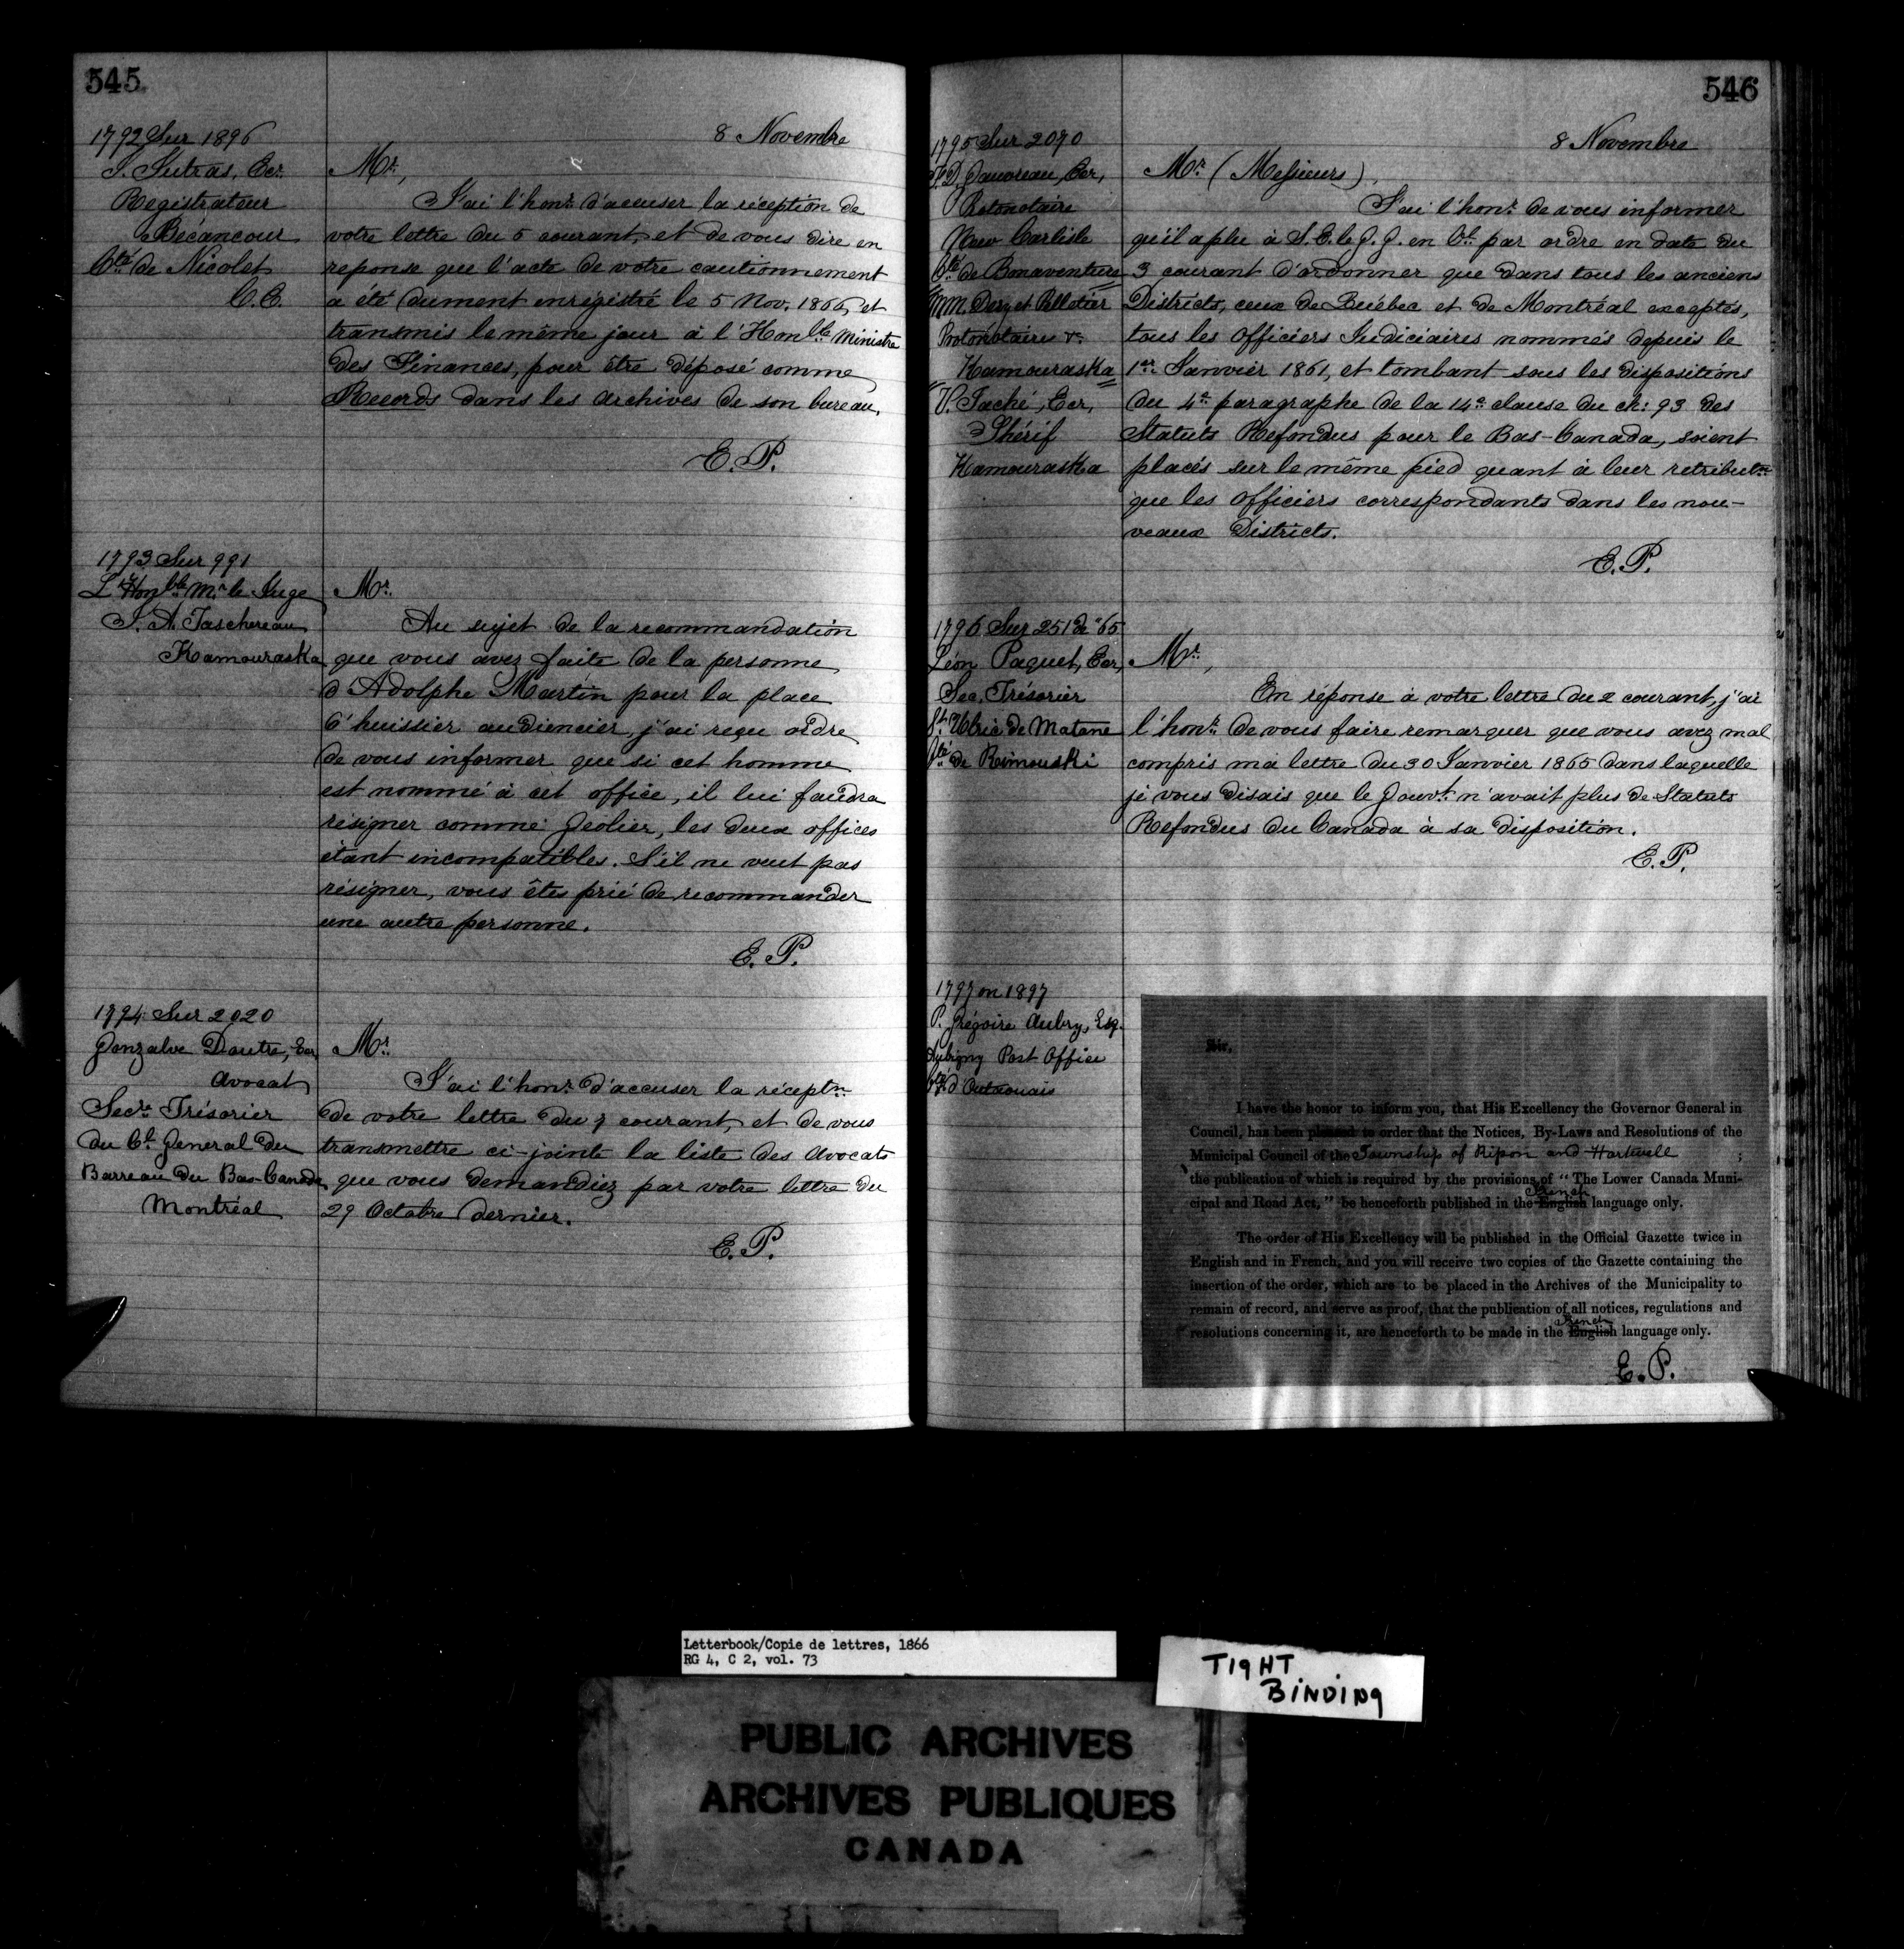 545
8 Novembre
1792 Sur 1896
J. Sutras, Ecr.
Registrateur
Bécancour
Cté de Nicolet
C.E.
Mr,
J'ai l'honr. d'accuser la réception de
votre lettre du 5 courant, et de vous dire en
reponse que l'acte de votre cautionnement
a été dument enrégistré le 5 Nov. 1866, et
transmis le même jour à l'Honble. Ministre
des Finances, pour être déposé comme
Records dans les archives de son bureau.
E. P.
1793 Sur 991
L'Honble. Mr. le Juge
J. A. Taschereau
Kamouraska
Mr.
Au sujet de la recommandation
que vous avez faite de la personne
d'Adolphe Martin pour la place
d'huissier audiencier, j'ai reçu ordre
de vous informer que si cet homme
est nommé à cet office, il lui faudra
résigner comme Geolier, les deux offices
étant incompatibles. S'il ne veut pas
résigner, vous êtes prié de recommander
une autre personne.
E. P.
1794 Sur 2020
Gonzalve Doutre, Ecr
Avocat
Secre. Trésorier
du Cl. General du
Barreau du Bas-Canada
Montréal
Mr.
J'ai l'honr. d'accuser la réceptn.
de votre lettre du 7 courant, et de vous
transmettre ci-jointe la liste des Avocats
que vous demandiez par votre lettre du
29 Octobre dernier.
E. P.
546
8 Novembre
1795 Sur 2070
P. D. Gauvreau, Ecr,
Protonotaire
New Carlisle
Cté de Bonaventure
MM. Dery et Pelletier
Protonotaires &c
Kamouraska
V. Taché, Ecr,
Shérif
Kamouraska
Mr. (Messieurs),
J'ai l'honr. de vous informer
qu'il a plu à S. E. le G. G. en Cl. par ordre en date du
3 courant d'ordonner que dans tous les anciens
Districts, ceux de Québec et de Montréal exceptés,
tous les Officiers Judiciaires nommés depuis le
1er. Janvier 1861, et tombant sous les dispositions
du 4e. paragraphe de la 14e. clause du ch: 93 des
Statuts Refondus pour le Bas-Canada, soient
placés sur le même pied quant à leur retributn.
que les Officiers correspondants dans les nou-
veaux Districts.
E. P.
1796 Sur 251 de '65
Léon Paquet, Ecr,
Sec. Trésorier
St. Ulric de Matane
Cté de Rimouski
Mr,
En réponse à votre lettre du 2 courant, j'ai
l'honr. de vous faire remarquer que vous avez mal
compris ma lettre du 30 Janvier 1865 dans laquelle
je vous disais que le Gouvt. n'avait plus de Statuts
Refondus du Canada à sa disposition.
E. P.
1797 on 1897
P. Grégoire Aubry, Esq.
Aubigny Post Office
Cté d'Outaouais
Sir,
I have the honor to inform you, that His Excellency the Governor General in
Council, has been pleased to order that the Notices, By-Laws and Resolutions of the
Municipal Council of the Township of Ripon and Hartwell ;
the publication of which is required by the provisions of "The Lower Canada Muni-
cipal and Road Act," be henceforth published in the English French language only.
The order of His Excellency will be published in the Official Gazette twice in
English and in French, and you will receive two copies of the Gazette containing the
insertion of the order, which are to be placed in the Archives of the Municipality to
remain of record, and serve as proof, that the publication of all notices, regulations and
resolutions concerning it, are henceforth to be made in the English French language only.
E. P.
Letterbook/Copie de lettres, 1866
RG 4, C 2, vol. 73
TIGHT
BINDING
PUBLIC ARCHIVES
ARCHIVES PUBLIQUES
CANADA